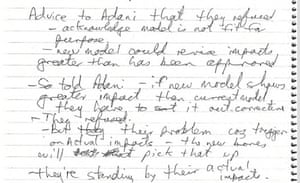 Advice to Adani that they refused
- acknowledge model is not fit for
purpose
- new model could revise impacts
greater than has been approved
- So told Adani - if new model shows
greater impact than current model
- they have to set it out corrective
- They refused.
- But their problem coz trigger
on Actual impacts - the new bores
will pick that up
- they're standing by their actual
impacts.